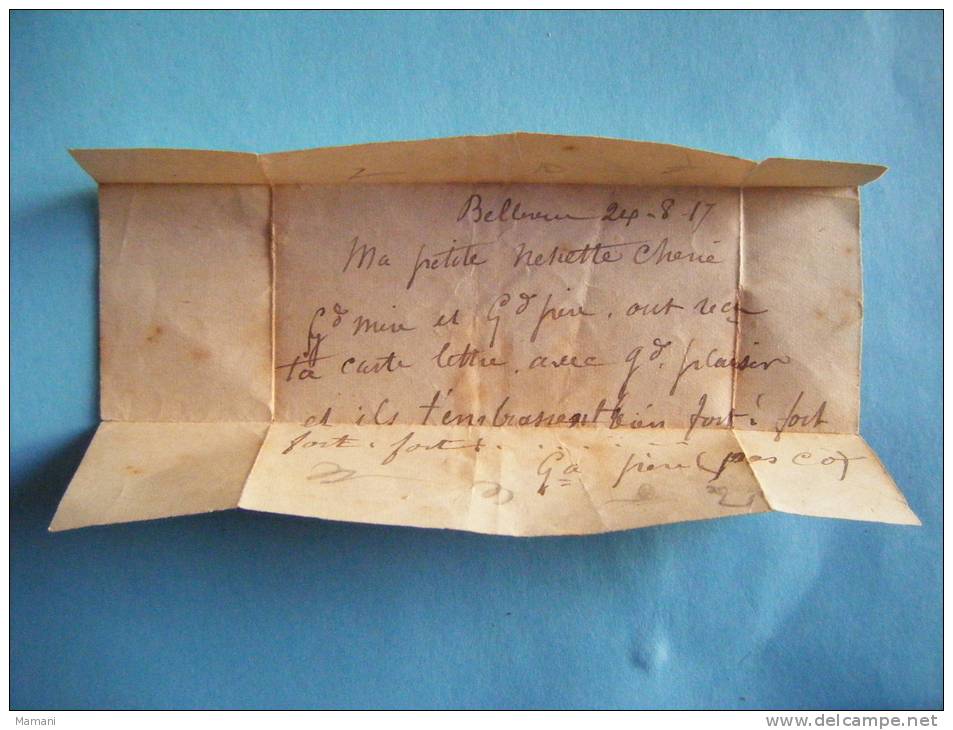 Bellevue 24-8-17
Ma petite Nenette Cherie
Gd mère et Gd père, ont reçu
ta carte lettre, avec gd. plaisir
et ils t'embrassent bien fort: fort
fort: fort: . . . . . . .
Gd père (pas co)
Mamani
www.delcampe.net